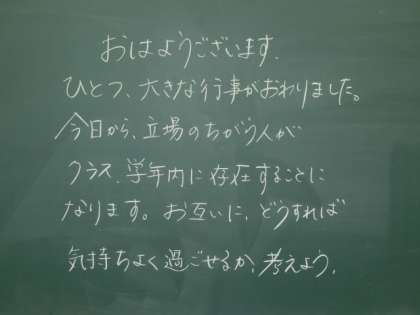 おはようございます.
ひとつ、大きな行事がおわりました。
今日から、立場のちがう人が
クラス、学年内に存在することに
なります。お互いに、どうすれば
気持ちよく過ごせるか、考えよう.